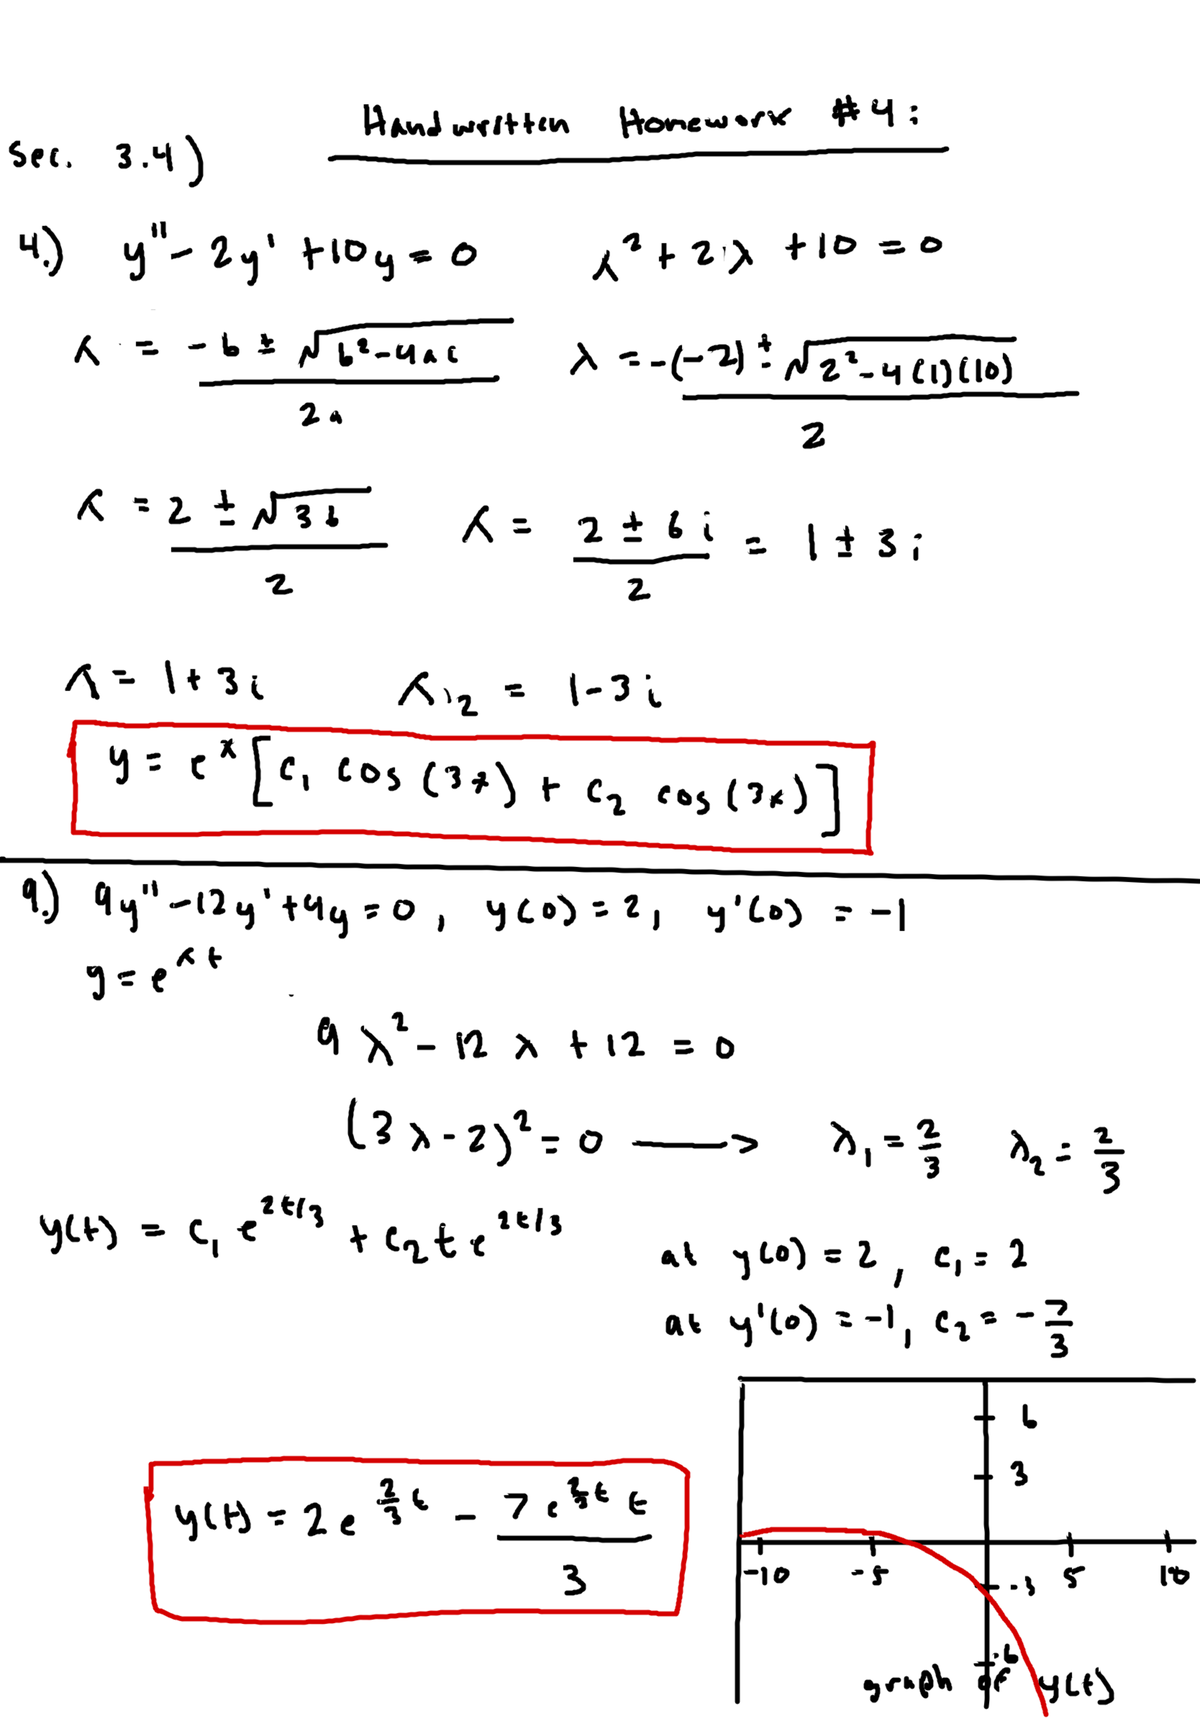 Handwritten Homework #4:
Sec. 3.4)
4.) y'' - 2y' + 10y = 0 λ² + 2λ + 10 = 0
λ = -b ± √b²-4ac / 2a λ = -(-2) ± √2²-4(1)(10) / 2
λ = 2 ± √36 / 2 λ = 2 ± 6i / 2 = 1 ± 3i
λ = 1+3i λ,2 = 1-3i
y = e^x [c₁ cos (3x) + c₂ cos (3x)]
9.) 9y''-12y'+4y=0, y(0)=2, y'(0) = -1
y = e^λt
9λ² - 12λ + 12 = 0
(3λ-2)² = 0 → λ₁ = 2/3 λ₂ = 2/3
y(t) = c₁ e^2t/3 + c₂ t e^2t/3
at y(0) = 2, c₁ = 2
at y'(0) = -1, c₂ = -7/3
y(t) = 2e^(2/3)t - 7e^(2/3)t t / 3
6
3
-10 -5 5 10
-3
-6
graph of y(t)